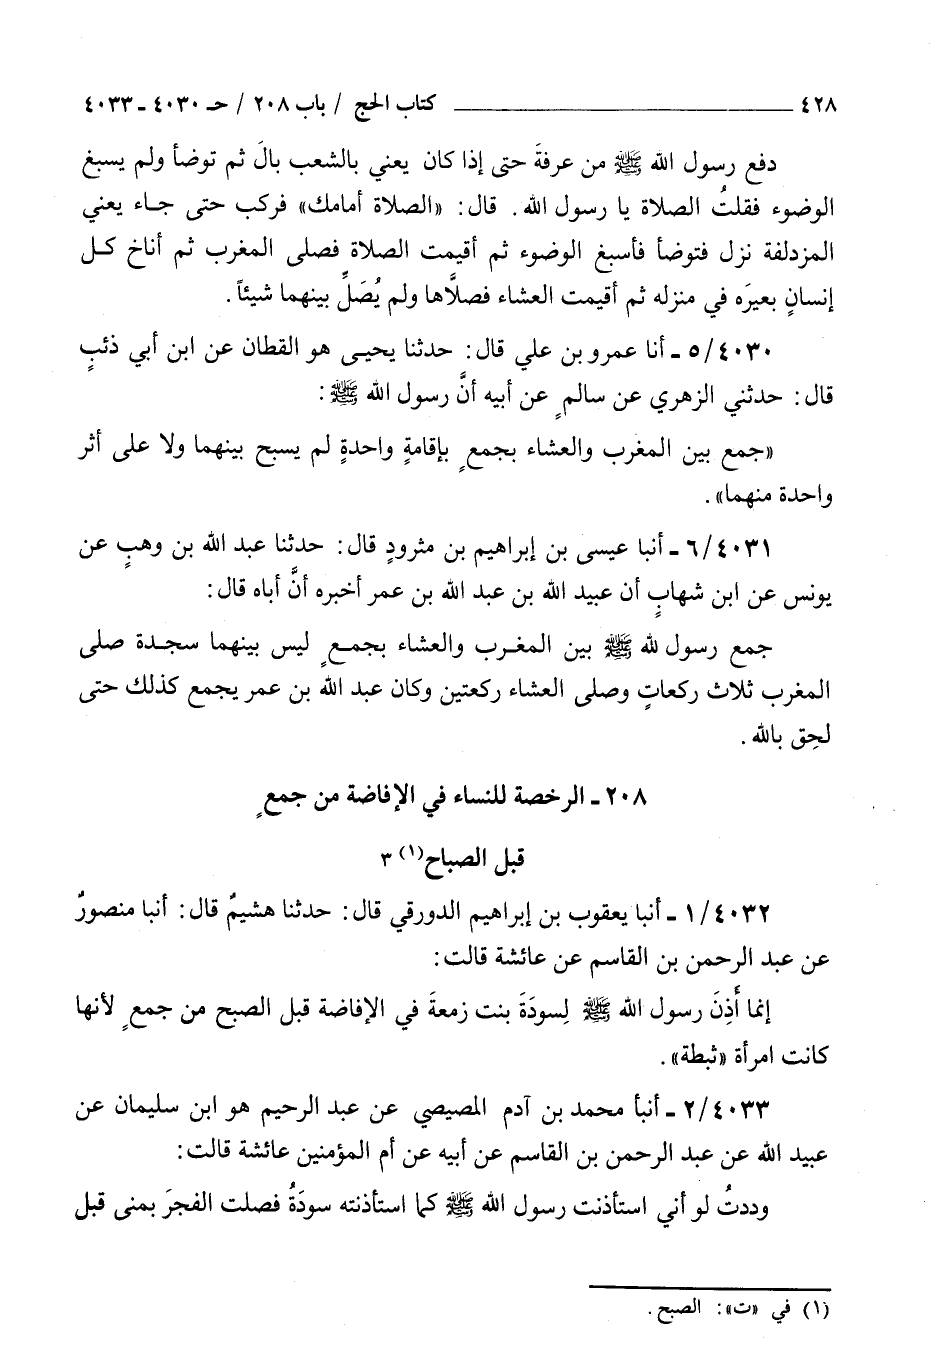 ٤٢٨ ـــــــــــــــــــــــــــــــــــــــ كتاب الحج / باب ٢٠٨ / حـ ٤٠٣٠ ـ ٤٠٣٣
دفع رسول الله ﷺ من عرفةَ حتى إذا كان يعني بالشعب بالَ ثم توضأ ولم يسبغ
الوضوء فقلتُ الصلاة يا رسول الله. قال: «الصلاة أمامك» فركب حتى جاء يعني
المزدلفة نزل فتوضأ فأسبغ الوضوء ثم أقيمت الصلاة فصلى المغرب ثم أناخ كل
إنسانٍ بعيرَه في منزله ثم أقيمت العشاء فصلَّاها ولم يُصَلِّ بينهما شيئاً.
٥/٤٠٣٠ ـ أنا عمرو بن علي قال: حدثنا يحيى هو القطان عن ابن أبي ذئبٍ
قال: حدثني الزهري عن سالمٍ عن أبيه أنَّ رسول الله ﷺ:
«جمع بين المغرب والعشاء بجمعٍ بإقامةٍ واحدةٍ لم يسبح بينهما ولا على أثر
واحدة منهما».
٦/٤٠٣١ ـ أنبا عيسى بن إبراهيم بن مثرودٍ قال: حدثنا عبد الله بن وهبٍ عن
يونس عن ابن شهابٍ أن عبيد الله بن عبد الله بن عمر أخبره أنَّ أباه قال:
جمع رسول لله ﷺ بين المغرب والعشاء بجمعٍ ليس بينهما سجدة صلى
المغرب ثلاث ركعاتٍ وصلى العشاء ركعتين وكان عبد الله بن عمر يجمع كذلك حتى
لحِق بالله.
٢٠٨ ـ الرخصة للنساء في الإفاضة من جمعٍ
قبل الصباح(١) ٣
١/٤٠٣٢ ـ أنبا يعقوب بن إبراهيم الدورقي قال: حدثنا هشيمٌ قال: أنبا منصورٌ
عن عبد الرحمن بن القاسم عن عائشة قالت:
إنما أَذِنَ رسول الله ﷺ لِسودَةَ بنت زمعةَ في الإفاضة قبل الصبح من جمعٍ لأنها
كانت امرأة «ثبطة».
٢/٤٠٣٣ ـ أنبأ محمد بن آدم المصيصي عن عبد الرحيم هو ابن سليمان عن
عبيد الله عن عبد الرحمن بن القاسم عن أبيه عن أم المؤمنين عائشة قالت:
وددتُ لو أني استأذنت رسول الله ﷺ كما استأذنته سودَةُ فصلت الفجرَ بمنى قبل
(١) في «ت»: الصبح.